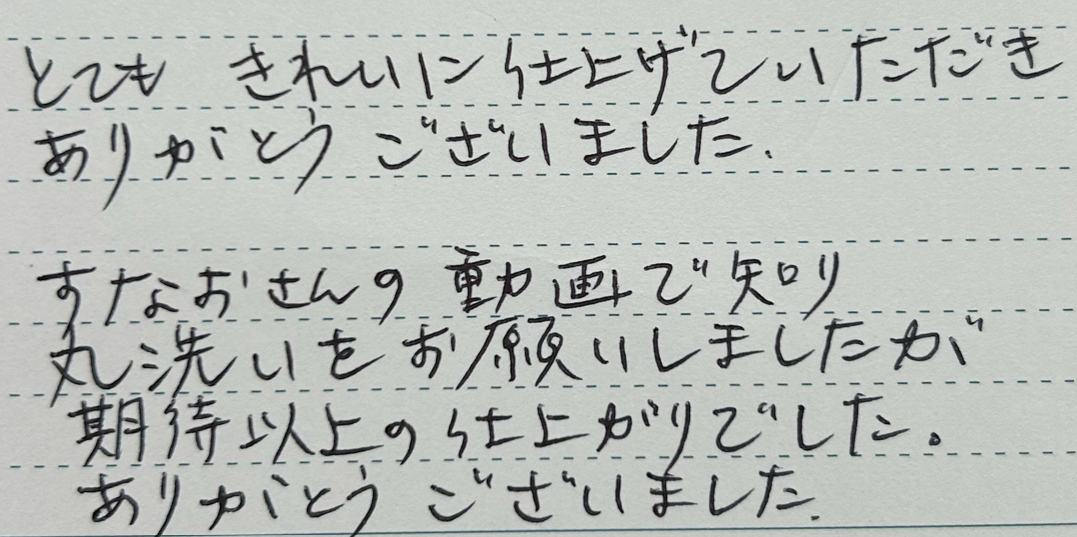 とても きれいに仕上げていただき
ありがとう ございました.
すなおさんの 動画で知り
丸洗いを お願いしましたが
期待以上の仕上がりでした。
ありがとう ございました.